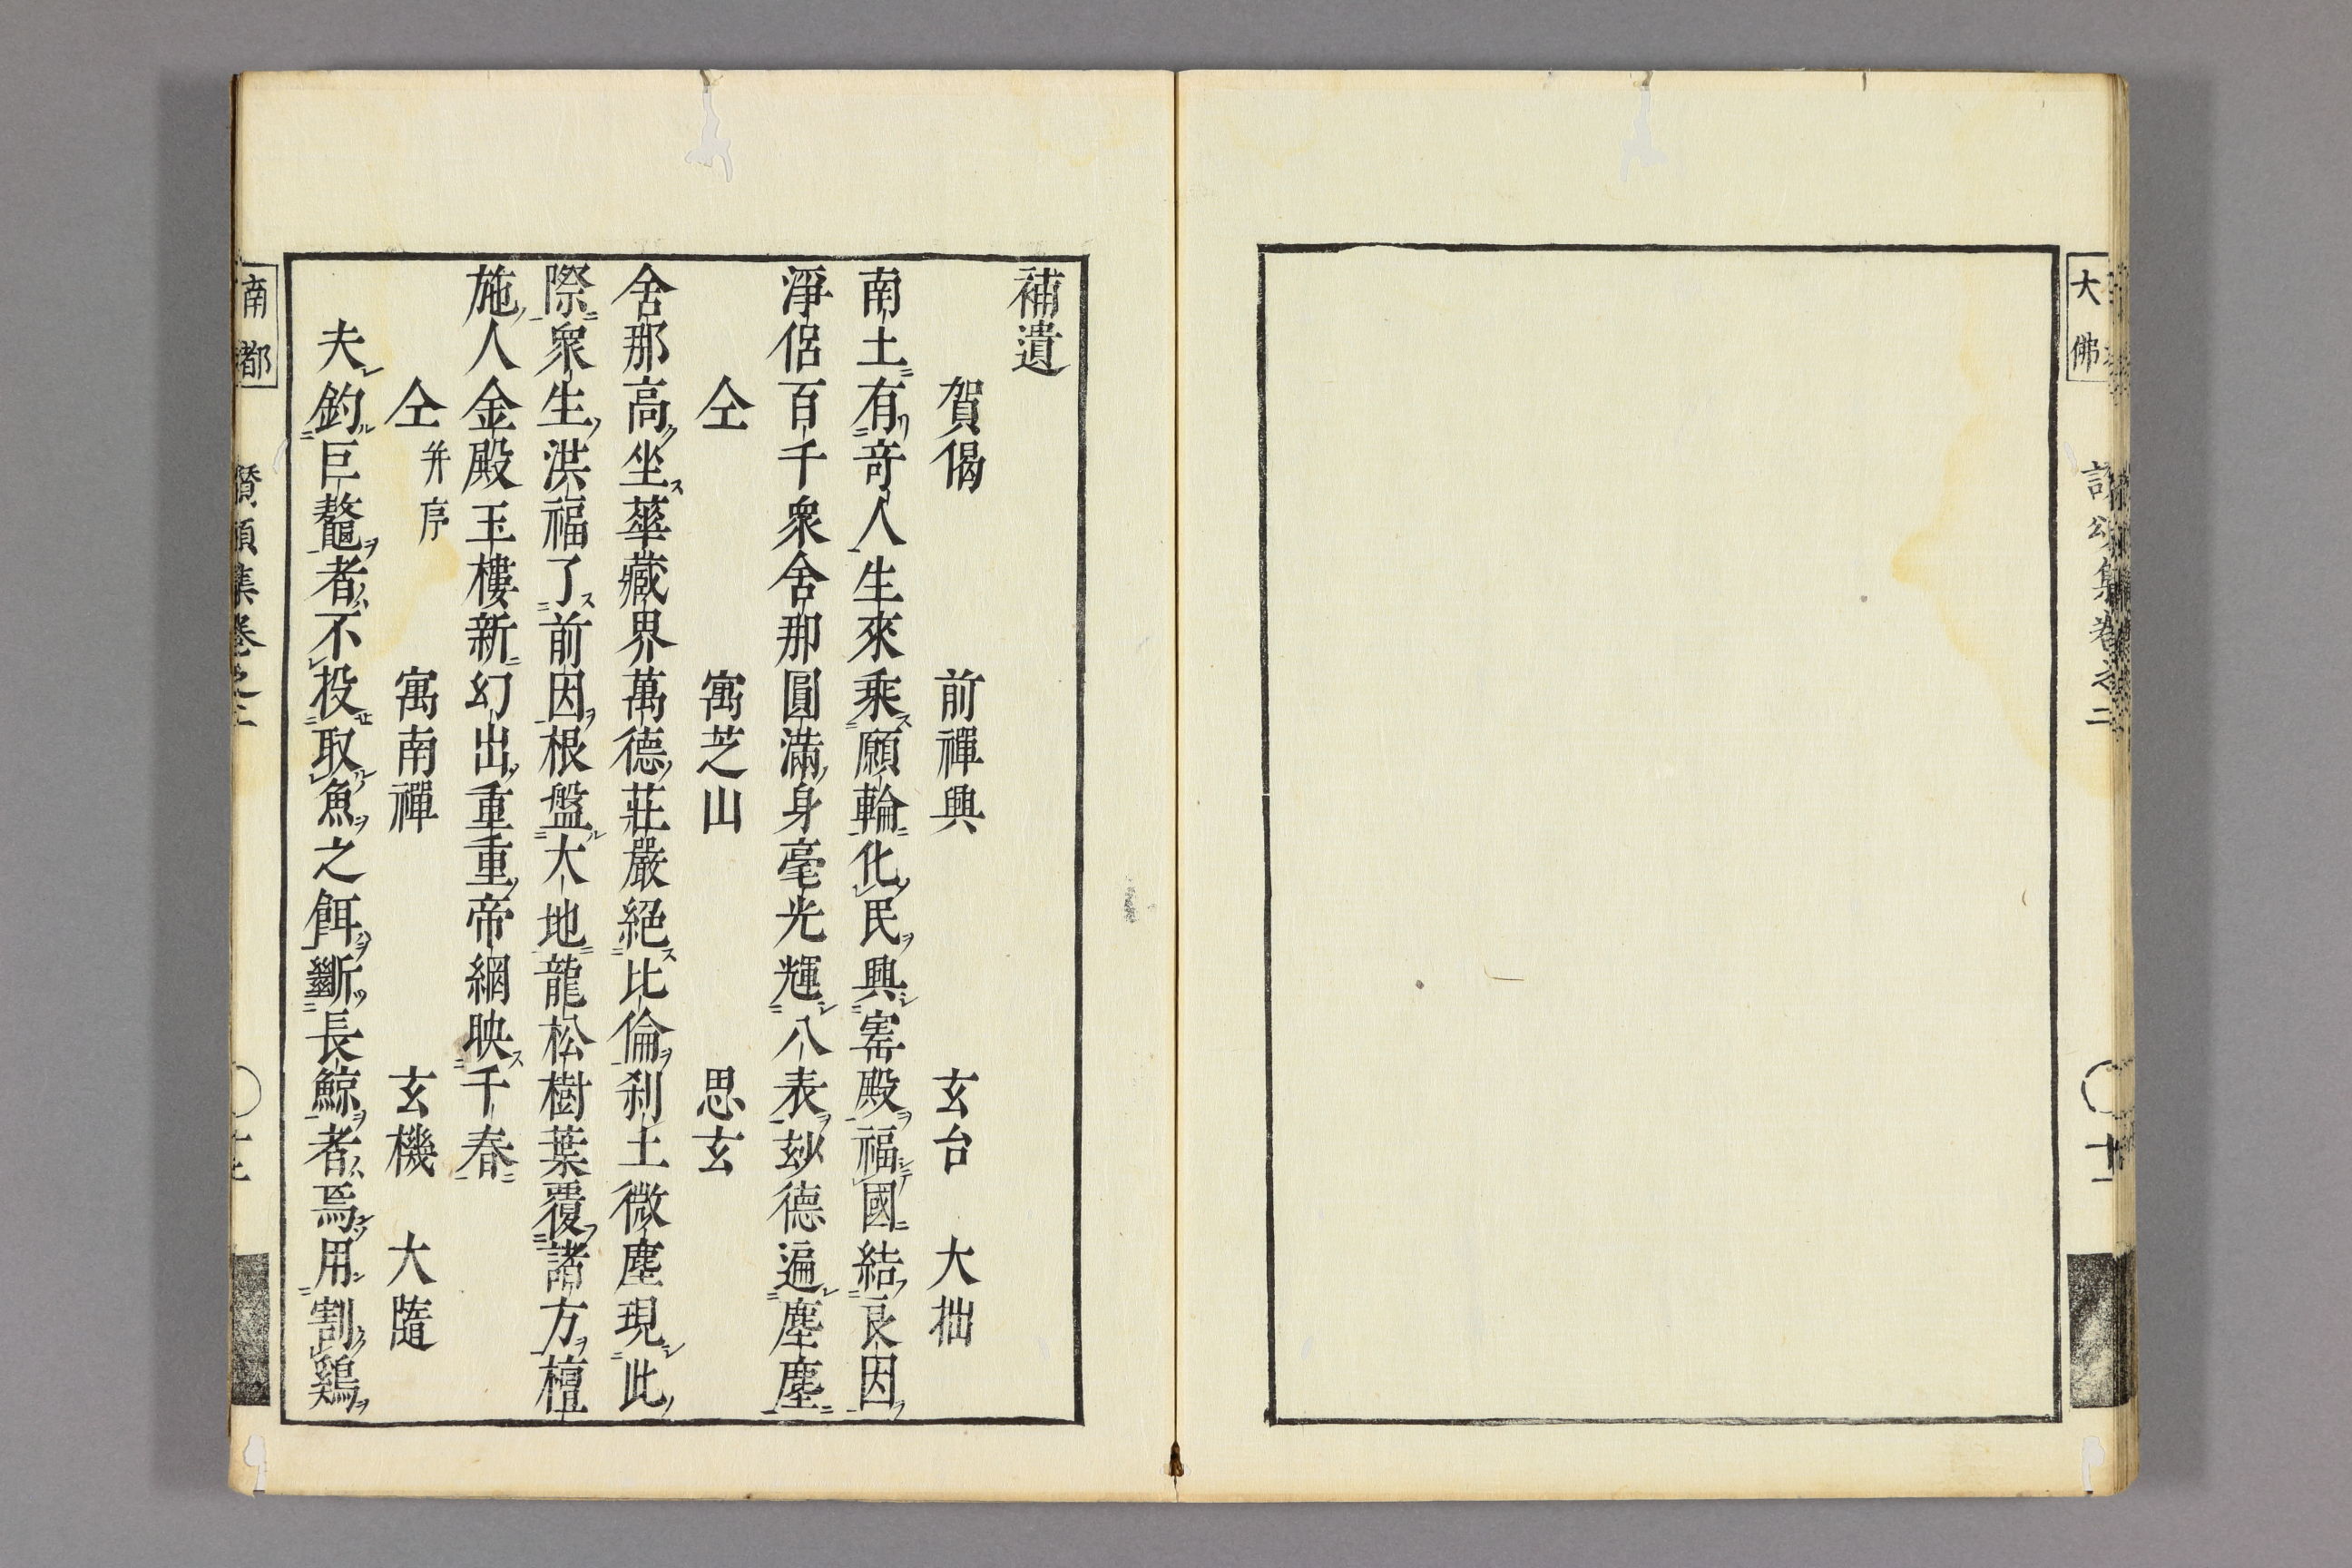 大佛
集卷之二
補遺
賀偈 前禪興 玄台 大拙
南土有竒人生來乘願輪化民興寚殿福國結良因
淨侶百千衆舍那圓滿身毫光輝八表玅德遍塵塵
仝 寓芝山 思玄
舍那高坐蕐藏界萬德莊嚴絕比倫刹土微塵現此
際衆生洪福了前因根盤大地龍松樹葉覆諸方檀
施人金殿玉樓新幻出重重帝網映千春
仝 并序 寓南禪 玄機 大隨
夫釣巨鼇者不投取魚之餌斷長鯨者焉用割鷄
南都
集卷之二